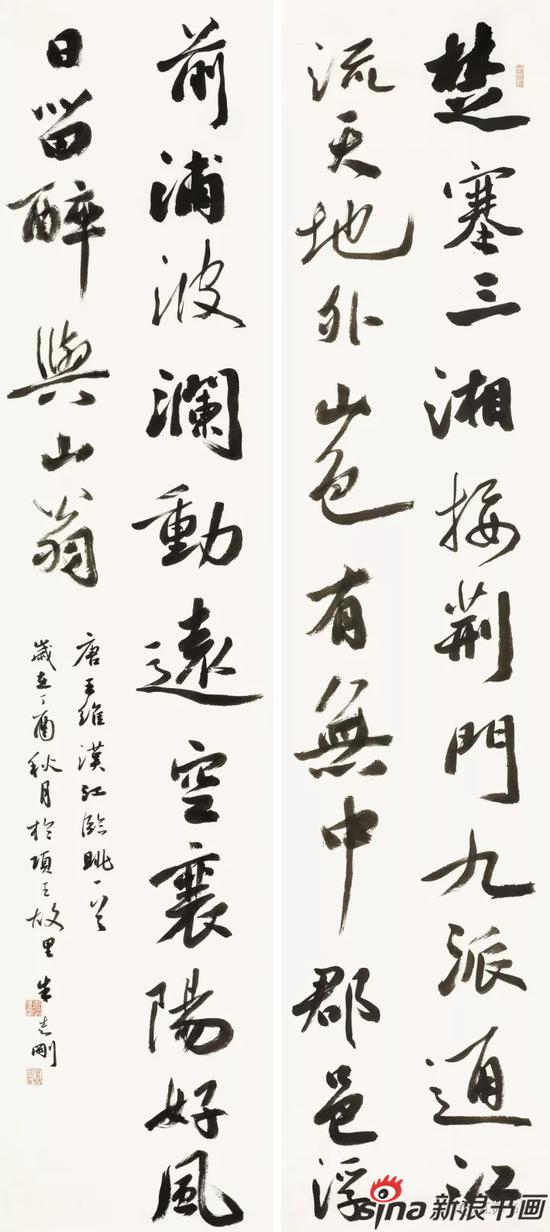 楚塞三湘接荆門九派通江
流天地外山色有無中郡邑浮
前浦波瀾動遠空襄陽好風
日留醉與山翁
唐王維漢江臨眺一首
歲在丁酉秋月於項王故里 朱志剛
sina 新浪书画